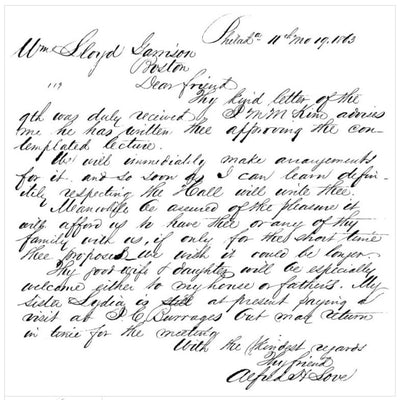 Philada 11th mo 19, 1863
Wm Lloyd Garrison
Boston
Dear friend
Thy kind letter of the
9th was duly received J M M Kim advises
me he has written thee approving the con-
templated lecture.
We will immediately make arrangements
for it. and so soon as I can learn defin-
itely respecting the Hall will write thee.
Meanwhile be assured of the pleasure it
will afford us to have thee or any of thy
family with us, if only for the short time
thee proposes we wish it could be longer
Thy good wife & daughter will be especially
welcome either to my house or father's. My
sister Lydia is still at present paying a
visit at J C Burrages but may return
in time for the meeting
With the kindest regards
Thy friend
Alfred H Love